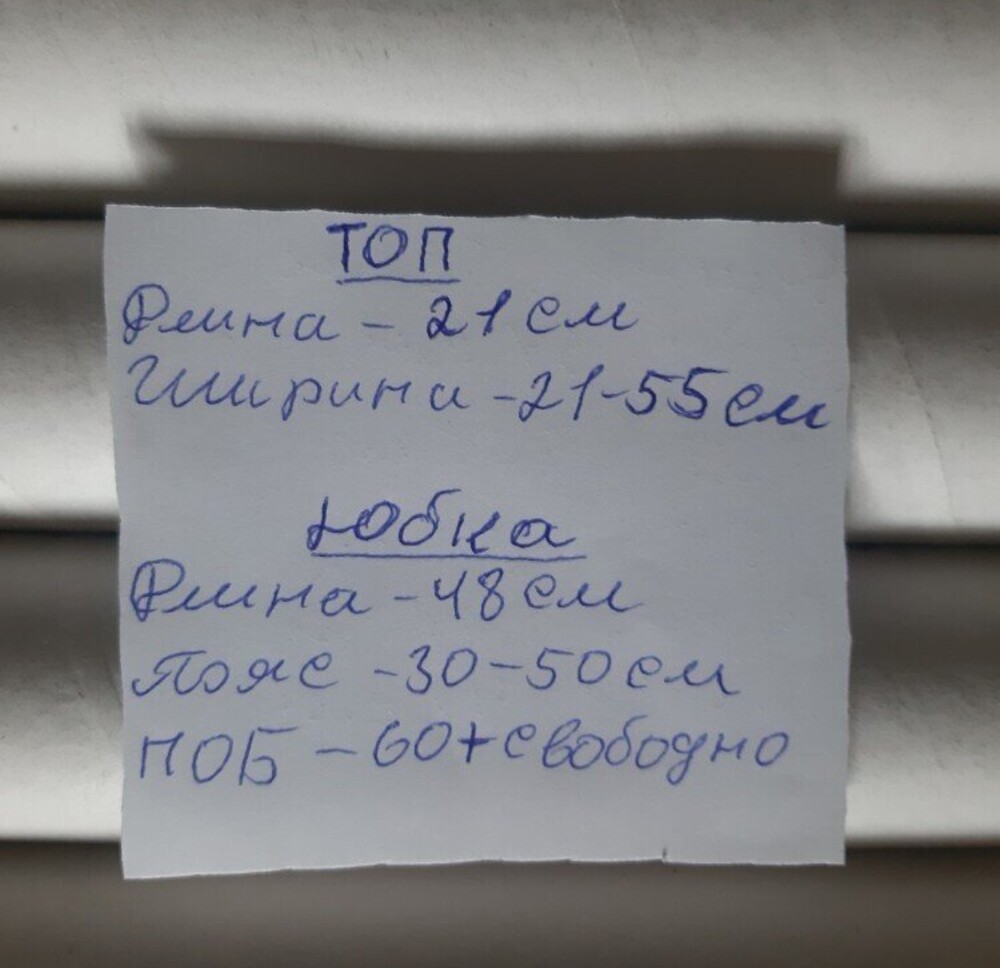 ТОП
Длина - 21 см
Ширина - 21-55 см
Юбка
Длина - 48 см
Пояс - 30-50 см
ПОБ - 60+свободно